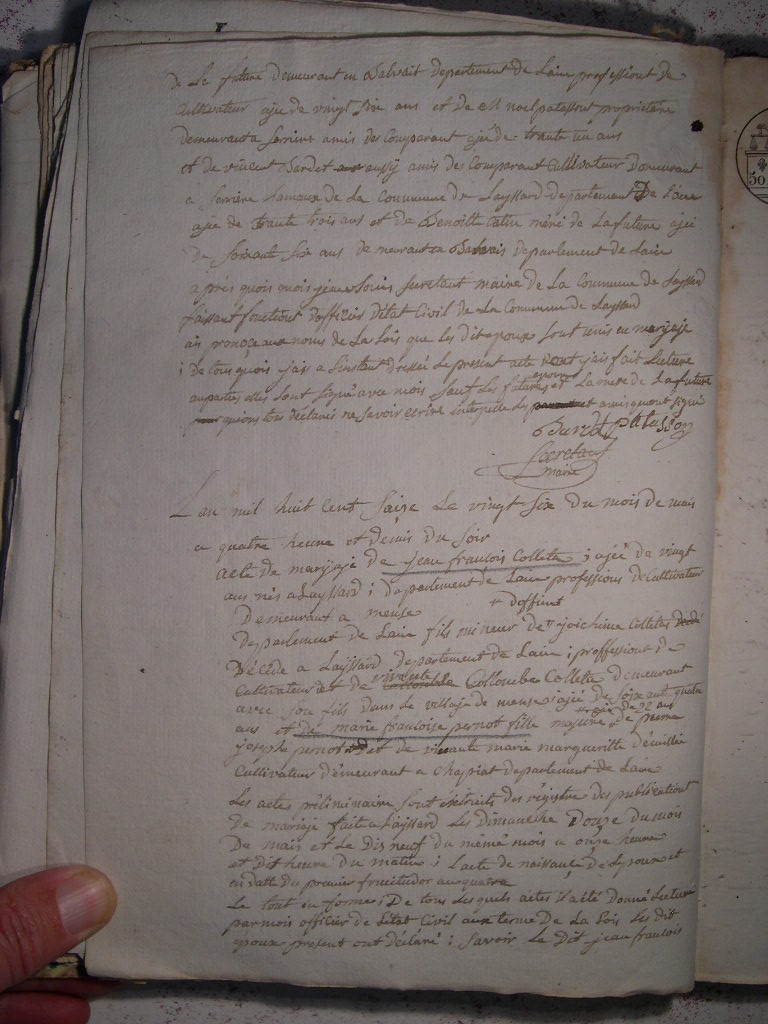 de la future demeurant en departement de Lain professiont de
Cultivateur ajé de vingt Six ans et de noel patasson proprietaire
demeurant a Serriere amis des Comparant ajé de trante un ans
et de vincent Berdet aussy amis des Comparant Cultivateur Demeurant
a Serriere de La Commune de Layssard departement De Lain
ajée de trante trois ans et de Benoitte mère de La future ajée
de Soixante Six ans demeurante a departement de Lain
aprés quois mois jean Louis Secretant maire de La Commune de Layssard
faissant fonctiont dofficier détat Civil de La Commune de Layssard
ais au nom de La Lois que Les Dit epoux Sont unis en mariaje
de tous quois jais a Linstant dressée Le present acte dont jais fait Lecture
au parties elles Sont Signé avec mois Sauf Les future epoux et La mere de La future
pour qui ons tous déclarés ne Savoir ecrire et amis qui ont Signé
Burdet Patasson
Secretant
maire
Lan mil huit Cent Saize Le vingt Six du mois de mais
a quatre heure et demis du Soir
acte de mariajé de jean francois Colleta ; ajée de vingt
ans nés a Layssard ; departement de Lain professions de Cultivateur
Demeurant a meuse + Doffient
Departement de Lain fils mineur de + joichime Colletas
Décédé a Layssard departement de Lain ; proffessiont de
Cultivateur et de vivante Collombe Colleta demeurant
avec Son fils dans Le villaje de meuse ajée de Soixante quatre
ans et de marie francoise pernot fille majeure + ajée de 22 ans + de
joseph pernot et de vivante marie margueritte
Cultivateur démeurant a Chapiat departement de Lain
Les actes préliminaire Sont extraits des régistre des publicationt
de mariaje faite a Layssard Les Dimanche Douze du mois
De mais et Le Dis neuf du même mois a onze heure
et Dit heure Du matin ; Lacte de naissance De Lepoux et
en datte du premier fruitidor an quatre
Le tout en forme ; De tous Les quels actes il a été Donné Lecture
par mois officier de Létat Civil aux terme De La Lois Les dit
epoux présent ont Déclaré ; Savoir Le Dit jean francois